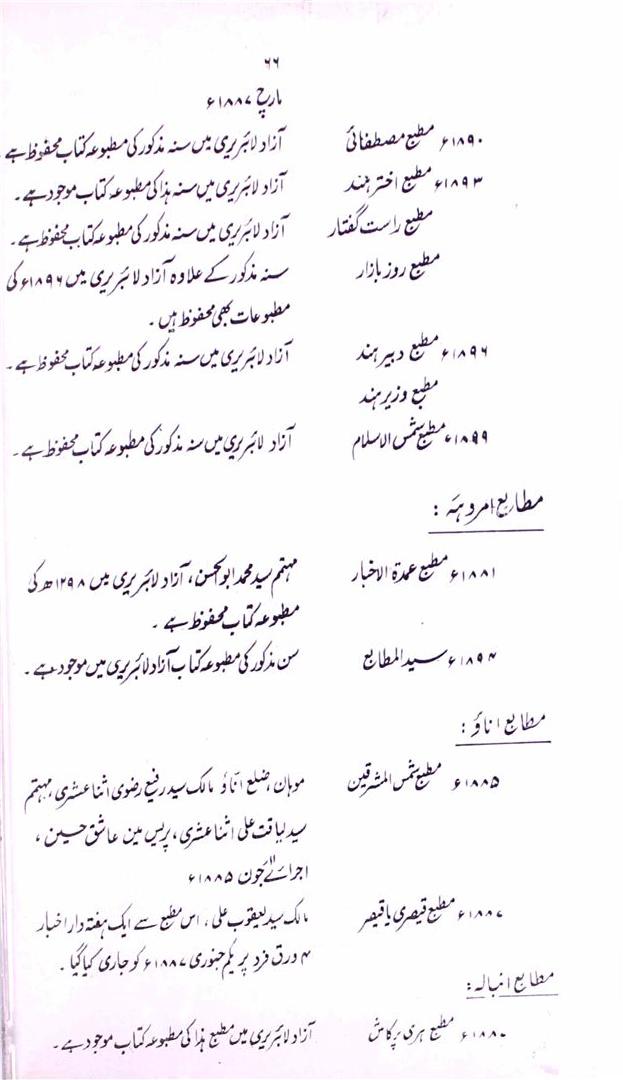 ۶۶
مارچ ۱۸۸۷ء
۱۸۹۰ء مطبع مصطفائی آزاد لائبریری میں سنہ مذکور کی مطبوعہ کتاب محفوظ ہے
۱۸۹۳ء مطبع اختر ہند آزاد لائبریری میں سنہ ہذا کی مطبوعہ کتاب موجود ہے۔
مطبع راست گفتار آزاد لائبریری میں سنہ مذکور کی مطبوعہ کتاب محفوظ ہے۔
مطبع روز بازار سنہ مذکور کے علاوہ آزاد لائبریری میں ۱۸۹۶ء کی
مطبوعات بھی محفوظ ہیں۔
۱۸۹۶ء مطبع دبیر ہند آزاد لائبریری میں سنہ مذکور کی مطبوعہ کتاب محفوظ ہے۔
مطبع وزیر ہند
۱۸۹۹ء مطبع شمس الاسلام آزاد لائبریری میں سنہ مذکور کی مطبوعہ کتاب محفوظ ہے۔
مطابع امروہہ :
۱۸۸۱ء مطبع عمدۃ الاخبار مہتمم سید محمد ابوالحسن، آزاد لائبریری میں ۱۲۹۸ھ کی
مطبوعہ کتاب محفوظ ہے۔
۱۸۹۴ء سید المطابع سن مذکور کی مطبوعہ کتاب آزاد لائبریری میں موجود ہے۔
مطابع اناؤ :
۱۸۸۵ء مطبع شمس المشرقین موہان، ضلع اناؤ مالک سید رفیع رضوی اثنا عشری، مہتمم
سید لیاقت علی اثنا عشری، پریس مین عاشق حسین،
اجرائے جون ۱۸۸۵ء
۱۸۸۷ء مطبع قیصری یا قیصر مالک سید یعقوب علی، اس مطبع سے ایک ہفتہ دار اخبار
۴ ورق فرد پر یکم جنوری ۱۸۸۷ء کو جاری کیا گیا۔
مطابع انبالہ :
۱۸۸۰ء مطبع ہری پرکاش آزاد لائبریری میں مطبع ہذا کی مطبوعہ کتاب موجود ہے۔